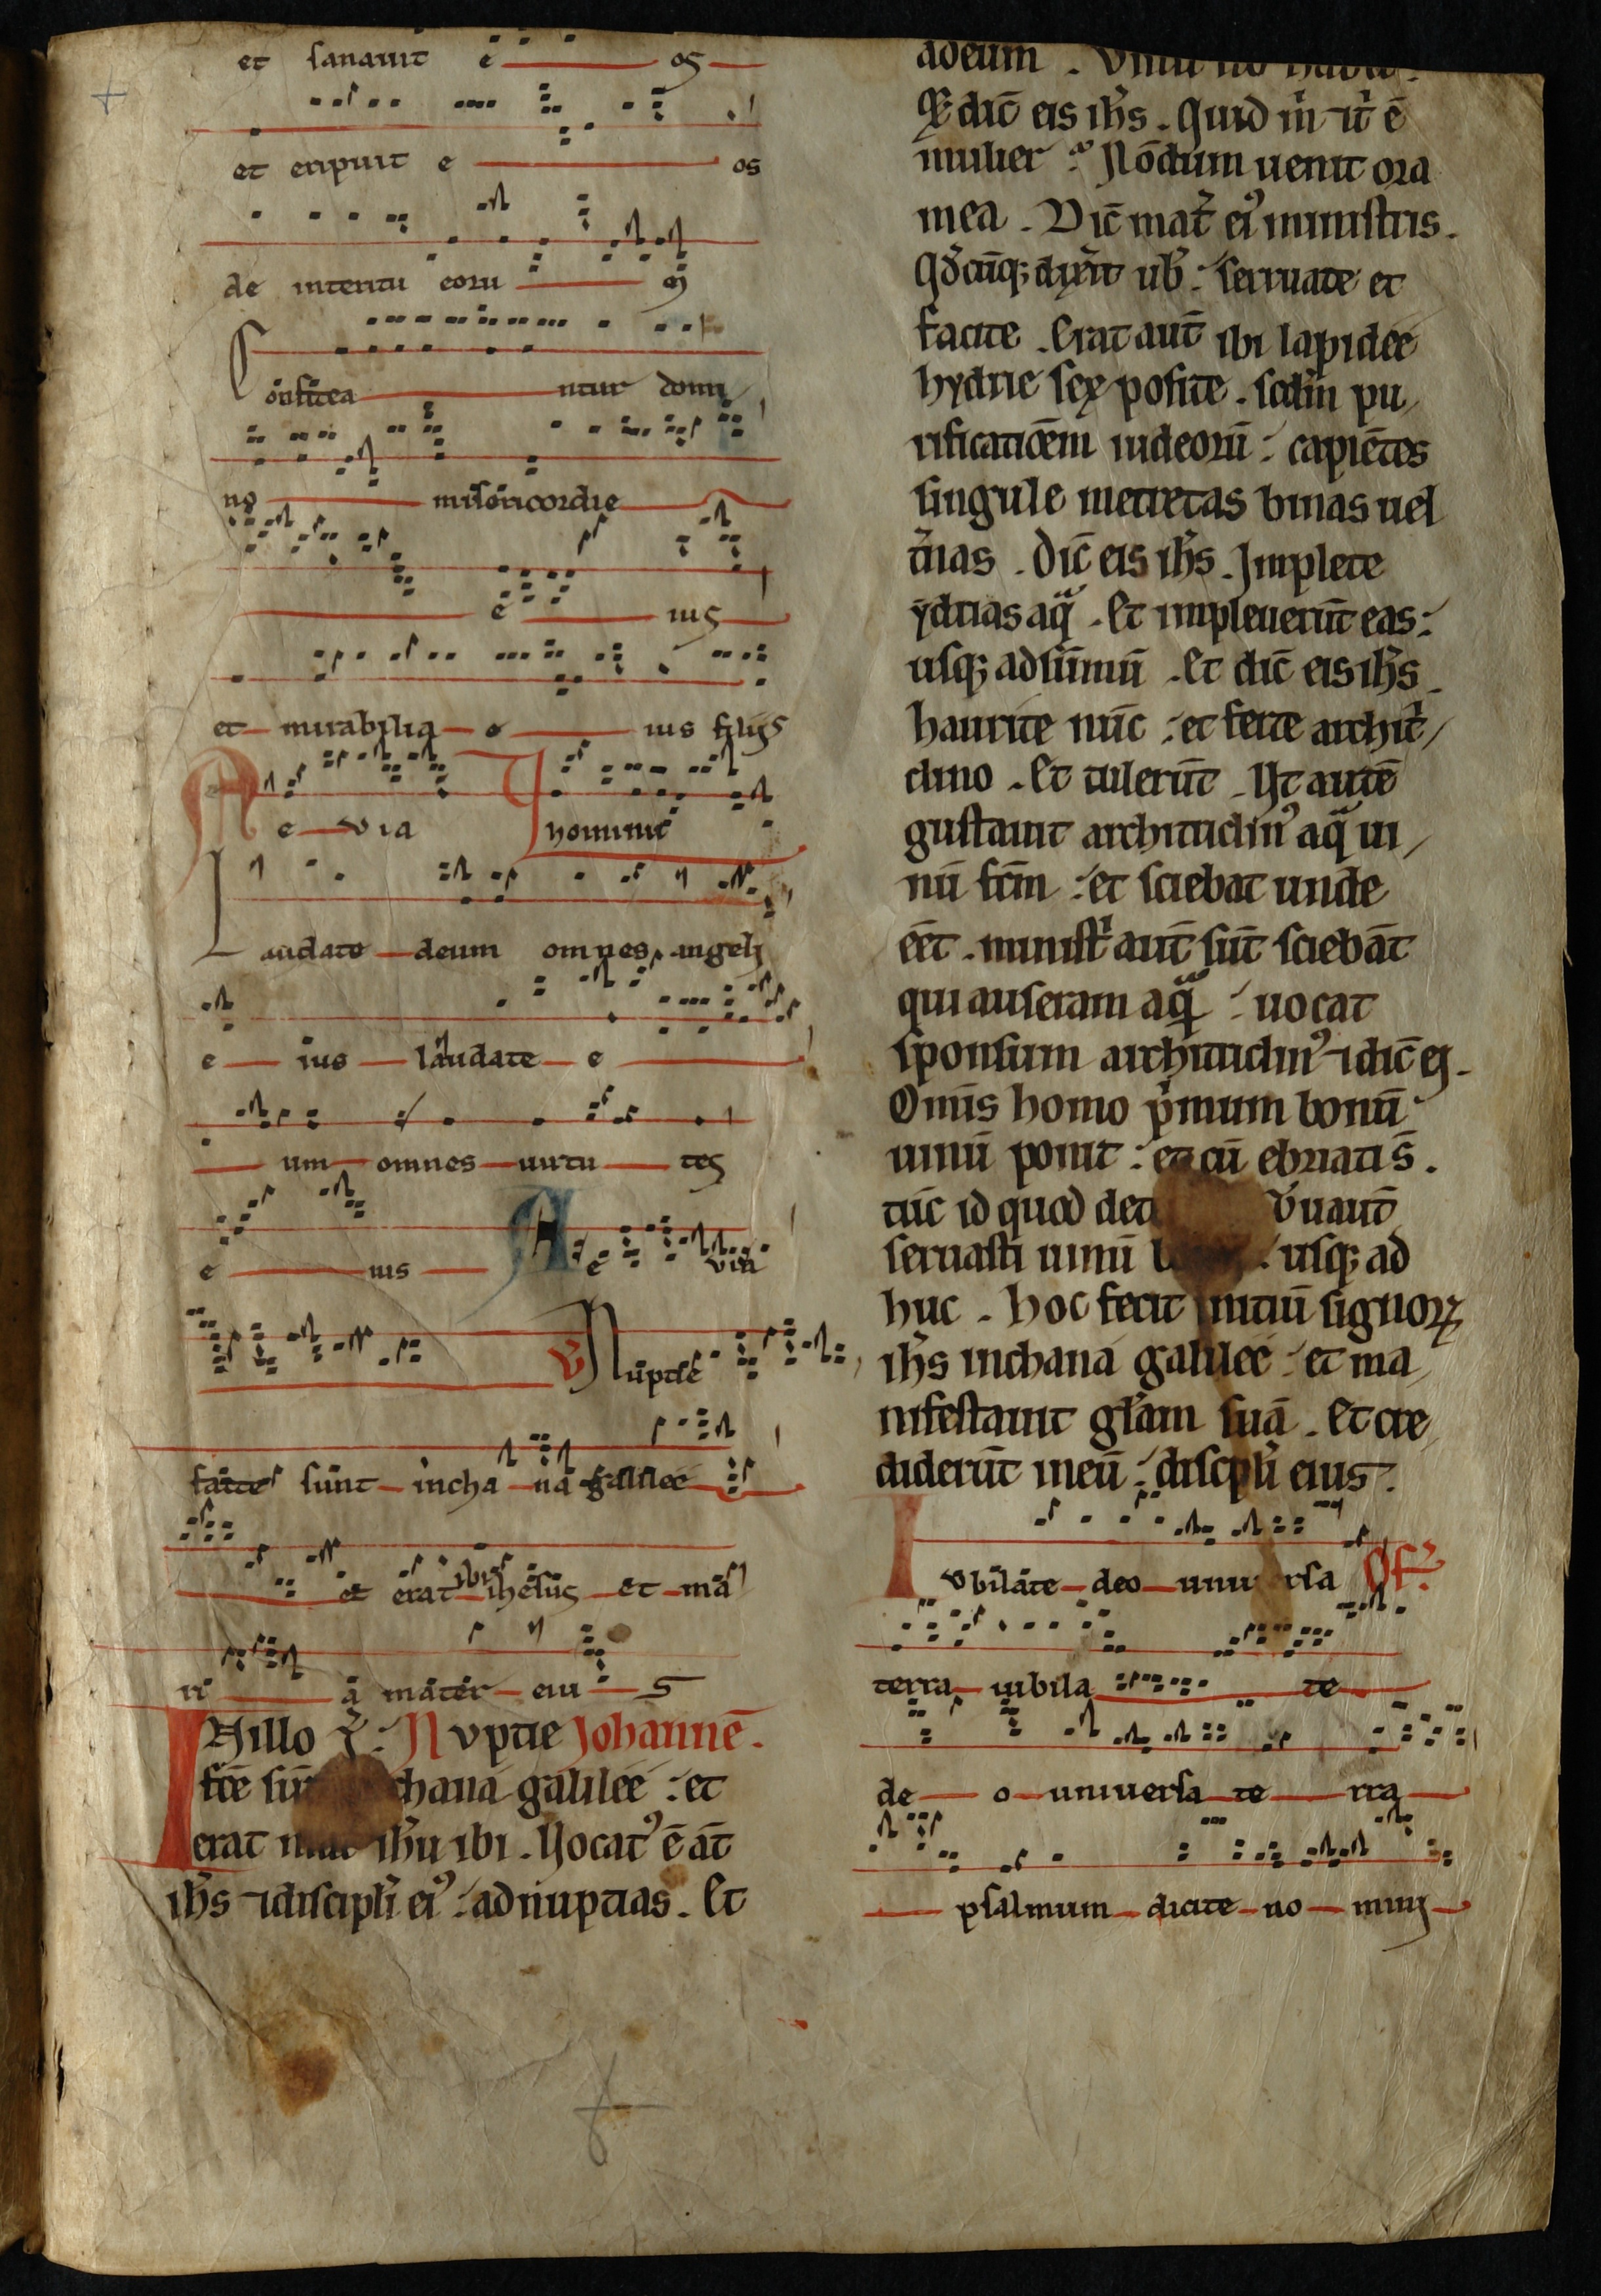 et sanauit e os
et eripuit e os
de interitu eoru m
Confitea ntur domi
no misericordie
e ius
et mirabilia e ius filijs
Ae via In omnie
Laudate deum omnes angeli
e ius laudate e
um omnes uirtu tes
e ius Ae via
V Nuptie
facte sunt incha na galilee
et erat ibi ihesus et ma
ri a mater eiu s
In illo t̄. Nuptie Johannē.
fcē sūt chana galilee : et
erat ih̄u ibi . Vocatꝰ ē āt
ih̄s ⁊ discipl̄i eiꝰ : ad nuptias . Et
adeum . Vinū nō
⁊ dic̄ eis ih̄s . Quid m̄ ⁊ t̄ ē
mulier ? Nōdum uenit ora
mea . Dic̄ mat̄ eiꝰ ministris .
Qd̄cūqꝫ dixit̄ ub̄ : seruate et
facite . Erat aut̄ ibi lapidee
hydrie sex posite . scdm̄ pu
rificatiōem iudeorū : capiētes
singule metretas binas uel
t̄nas . Dic̄ eis ih̄s . Implete
ydrias aq̄ . Et impleuerūt eas :
usqꝫ ad sūmū . Et dic̄ eis ih̄s .
haurite nūc : et ferte archit̄
clino . Et tulerūt . Vt autē
gustauit architriclinꝰ aq̄ ui
nū fcm̄ : et sciebat unde
eēt . minist̄ aut̄ sūt sciebāt
qui auseram aq̄ : uocat
sponsum architriclinꝰ ⁊ dic̄ ei .
Omīs homo pͥmum bonū
uinū ponit : et cū ebriati s̄ .
tūc id quod det v̄ aut̄
seruasti uinū . usqꝫ ad
huc . hoc fecit initiū signoꝝ
ih̄s inchana galilee : et ma
nifestauit gl̄am suā . Et cre
diderūt in eū : discipl̄i eius .
Iubilate deo uniuersa Of.
terra iubila te
de o uniuersa te rra
psalmum dicite no mini